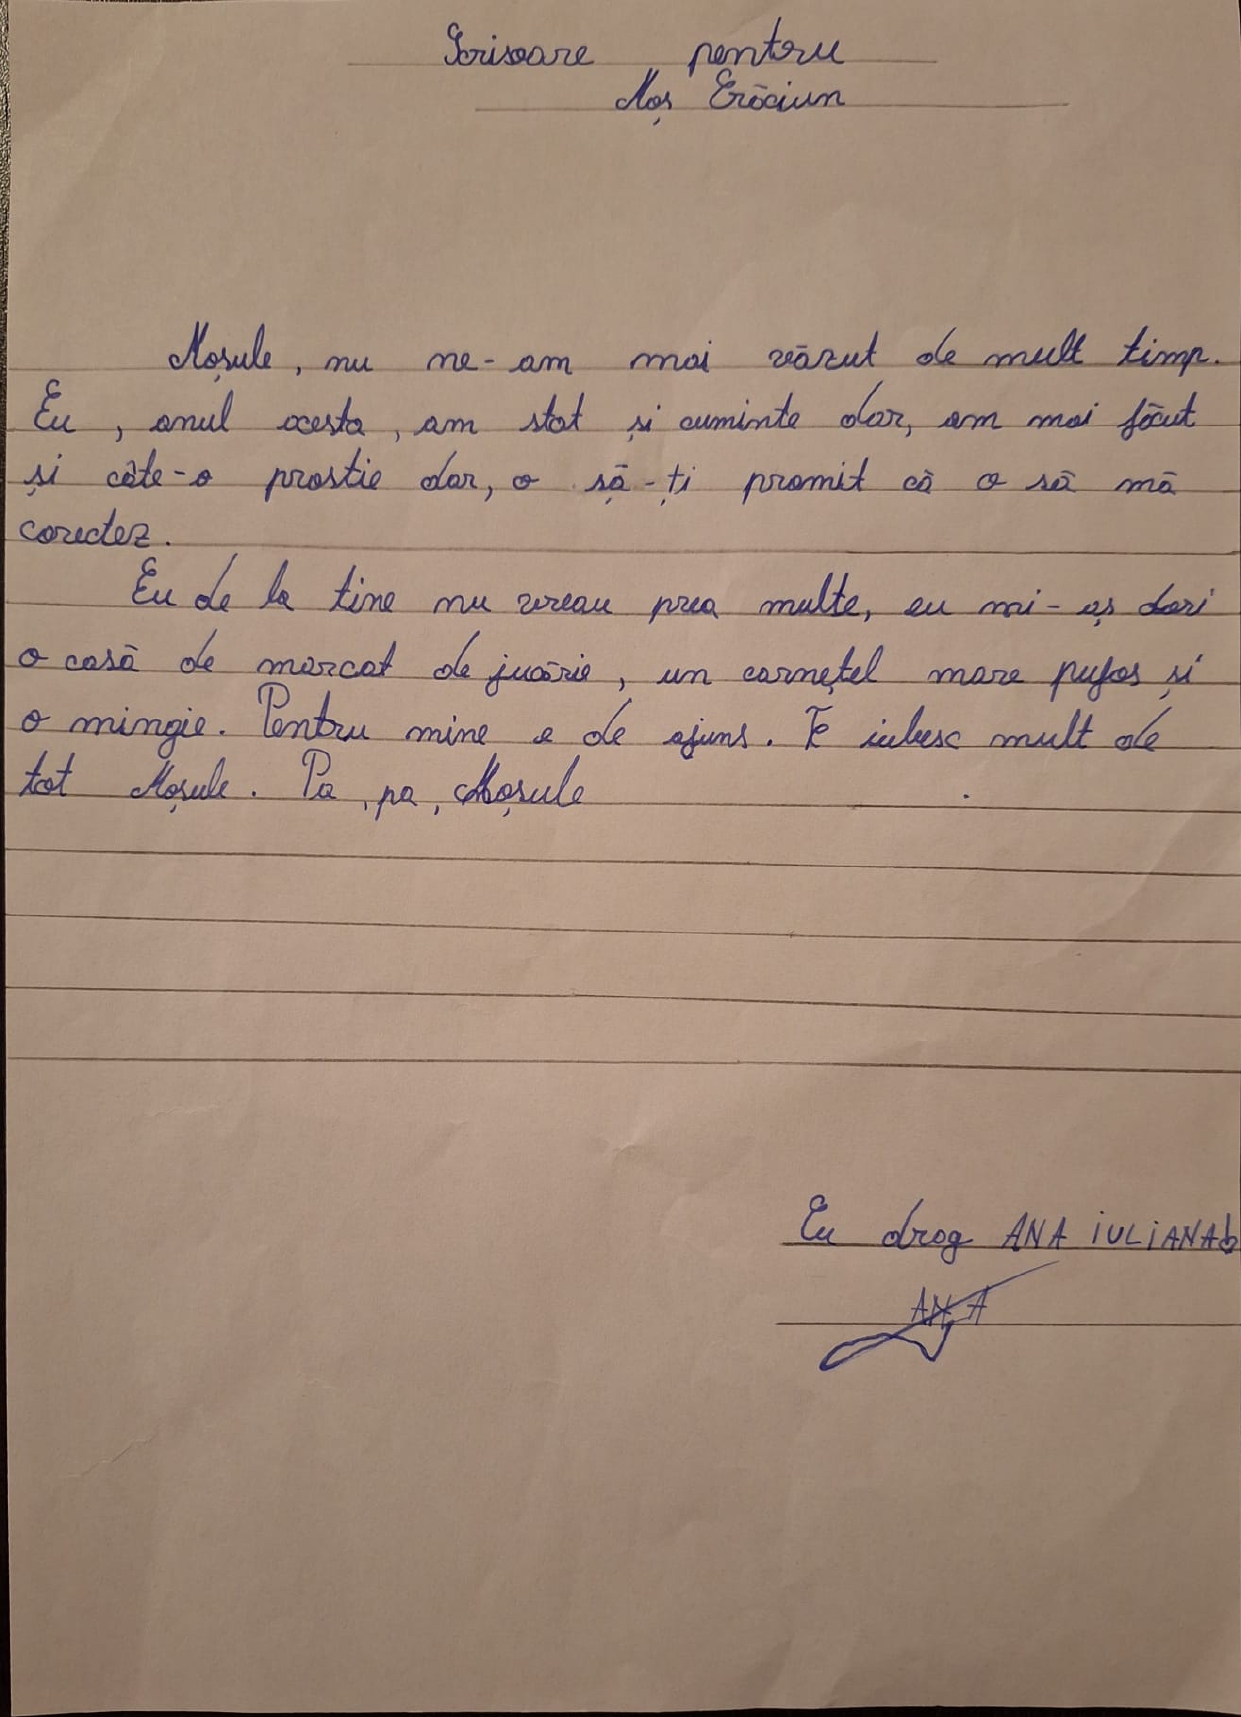 Scrisoare pentru
Moș Crăciun
Moșule, nu ne-am mai văzut de mult timp.
Eu, anul acesta, am stat și cuminte dar, am mai făcut
și câte-o prostie dar, o să-ți promit că o să mă
corectez.
Eu de la tine nu vreau prea multe, eu mi-aș dori
o casă de marcat de jucărie, un carnețel mare pufos și
o mingie. Pentru mine e de ajuns. Te iubesc mult de
tot Moșule. Pa, pa, Moșule.
Eu drag ANA IULIANA
ANA